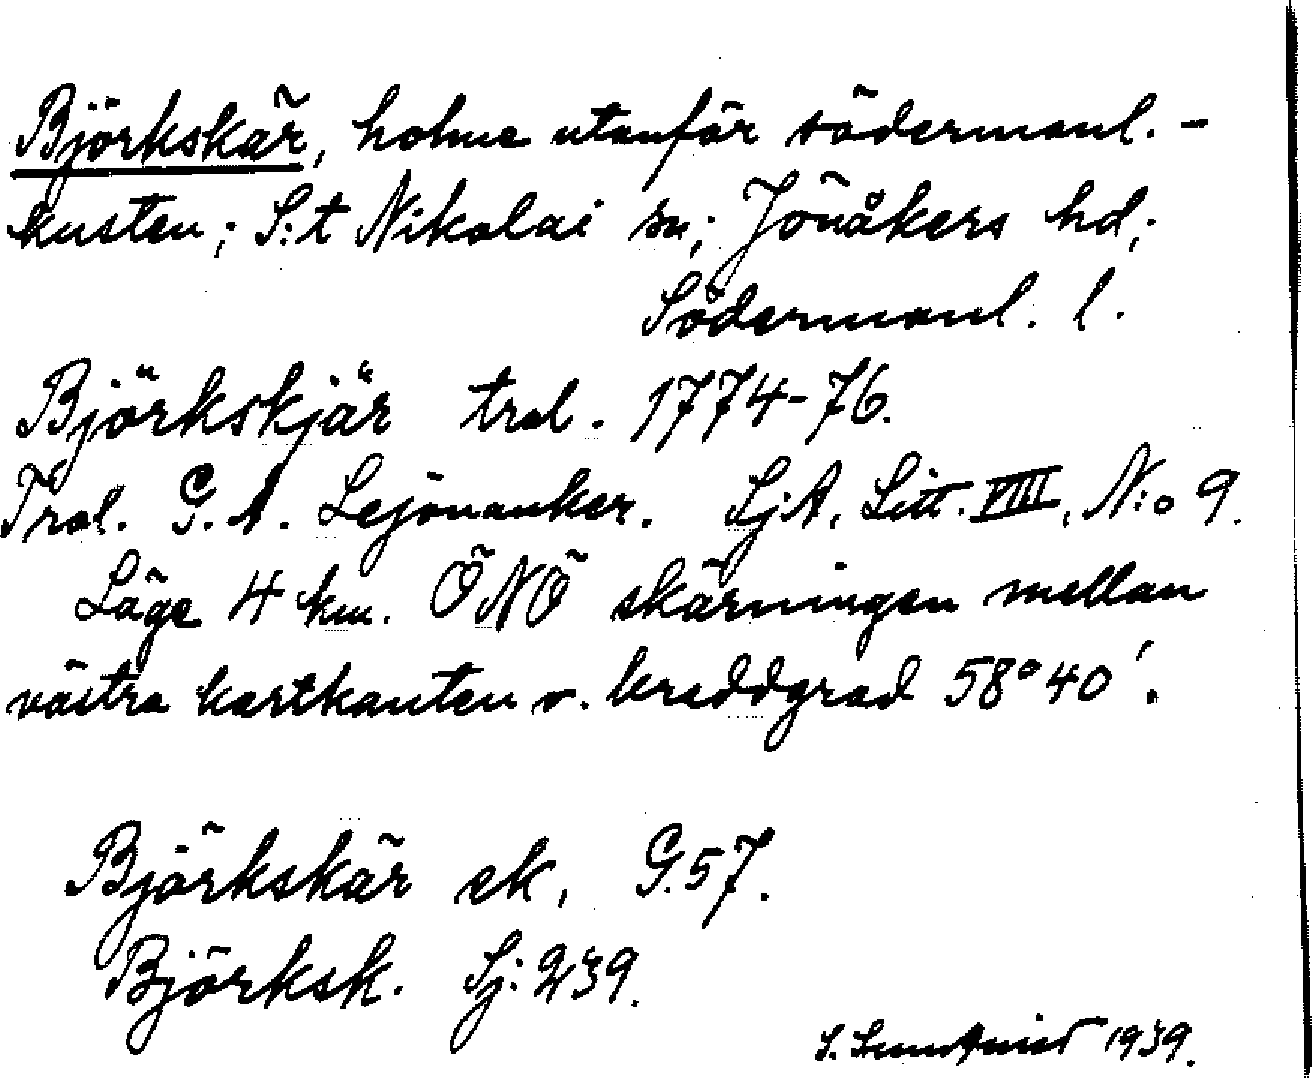 Björkskär, holme utanför södermanl. -
kusten; S:t Nikolai sn; Jönåkers hd;
Södermanl. l.
Björkskjär trol. 1774-76.
Trol. G. A. Lejonanker. SjA, Litt. VIII, N:o 9.
Läge 4 km. ÖNÖ skärningen mellan
västra kartkanten o. breddgrad 58° 40'.
Björkskär ek, G. 57.
Björksk. Sj: 239.
S. 1939.